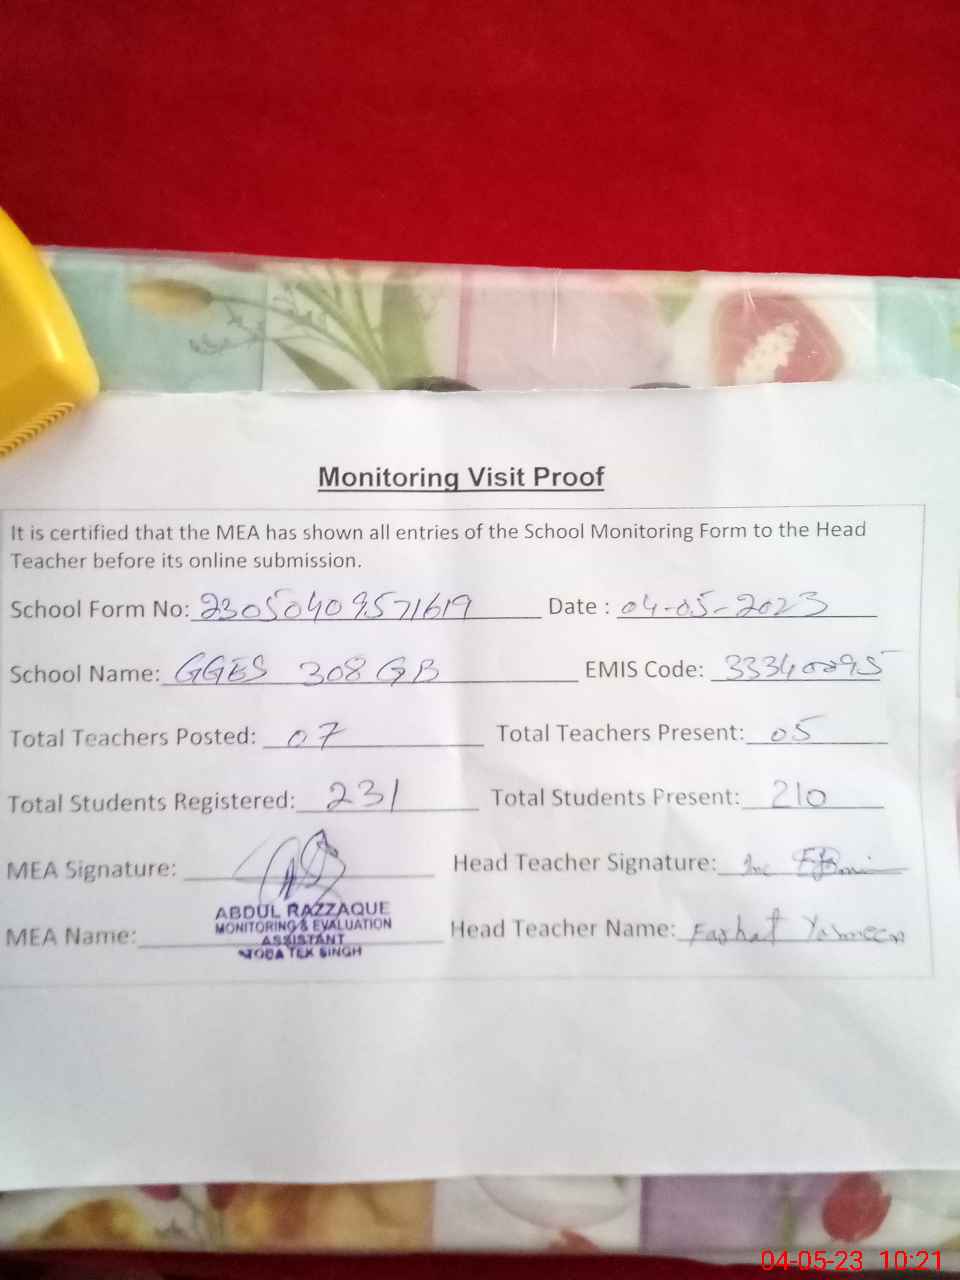 Monitoring Visit Proof
It is certified that the MEA has shown all entries of the School Monitoring Form to the Head
Teacher before its online submission.
School Form No: 23050409571619 Date : 04-05-2023
School Name: GGES 308 GB EMIS Code: 33340095
Total Teachers Posted: 07 Total Teachers Present: 05
Total Students Registered: 231 Total Students Present: 210
MEA Signature: Head Teacher Signature:
ABDUL RAZZAQUE
MONITORING & EVALUATION
ASSISTANT
TOBA TEK SINGH
MEA Name: Head Teacher Name: Farhat Yasmeen
04-05-23 10:21